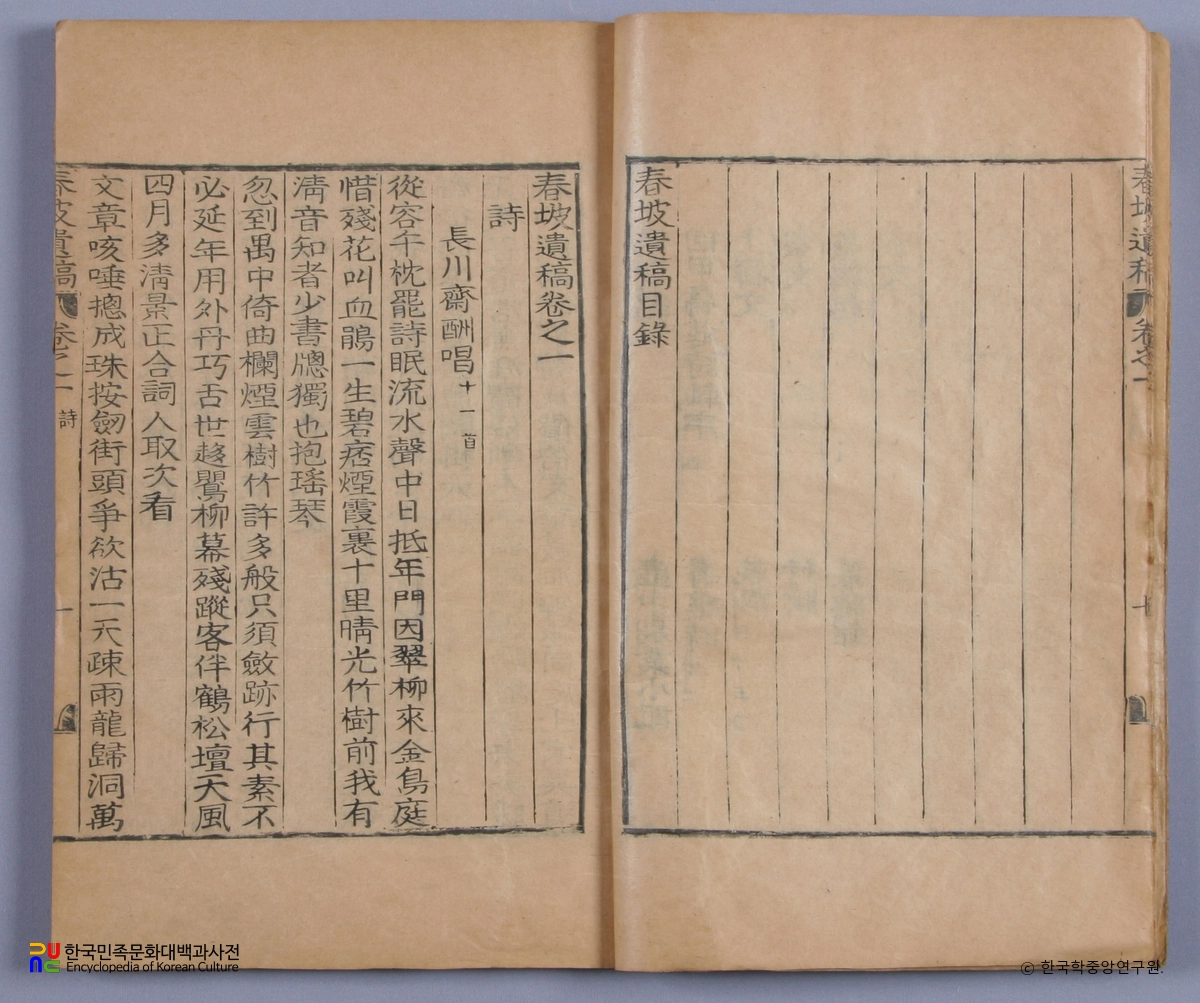 春坡遺稿 卷之一
七
春坡遺稿目錄
春坡遺稿卷之一
詩
長川齋酬唱 十一首
從容午枕罷詩眠流水聲中日抵年門因翠柳來金鳥庭
惜殘花叫血鵑一生碧痞煙霞裏十里晴光竹樹前我有
淸音知者少書牕獨也抱瑤琴
忽到禺中倚曲欄煙雲樹竹許多般只須斂跡行其素不
必延年用外丹巧舌世趍鸎柳幕殘蹤客伴鶴松壇天風
四月多淸景正合詞人取次看
文章咳唾摠成珠按劒街頭爭欲沽一天疎雨龍歸洞萬
春坡遺稿 卷之一 詩
一
한국민족문화대백과사전
Encyclopedia of Korean Culture
© 한국학중앙연구원.